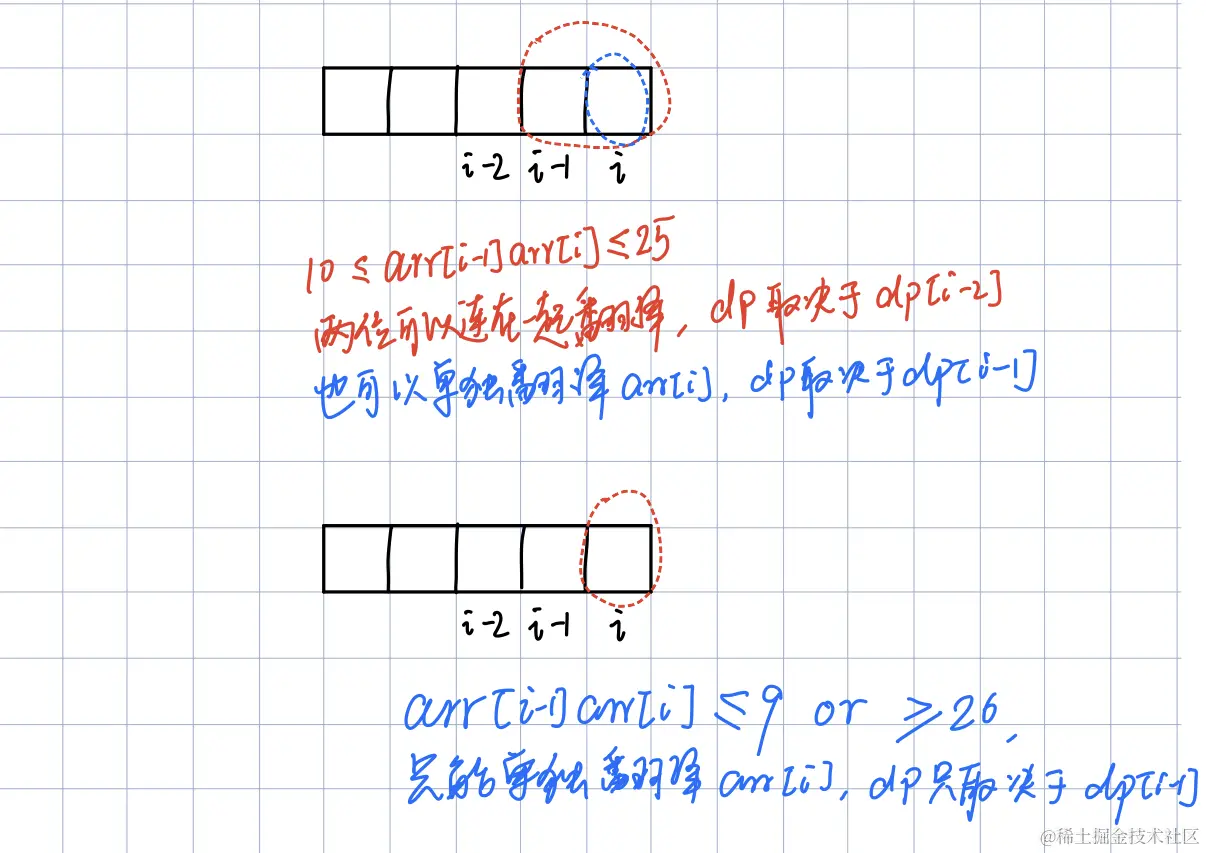 i-2 i-1 i
10 ≤ arr[i-1]arr[i] ≤ 25
两位可以连在一起翻译, dp取决于dp[i-2]
也可以单独翻译arr[i], dp取决于dp[i-1]
i-2 i-1 i
arr[i-1]arr[i] ≤9 or ≥26,
只能单独翻译arr[i], dp只取决于dp[i-1]
@稀土掘金技术社区